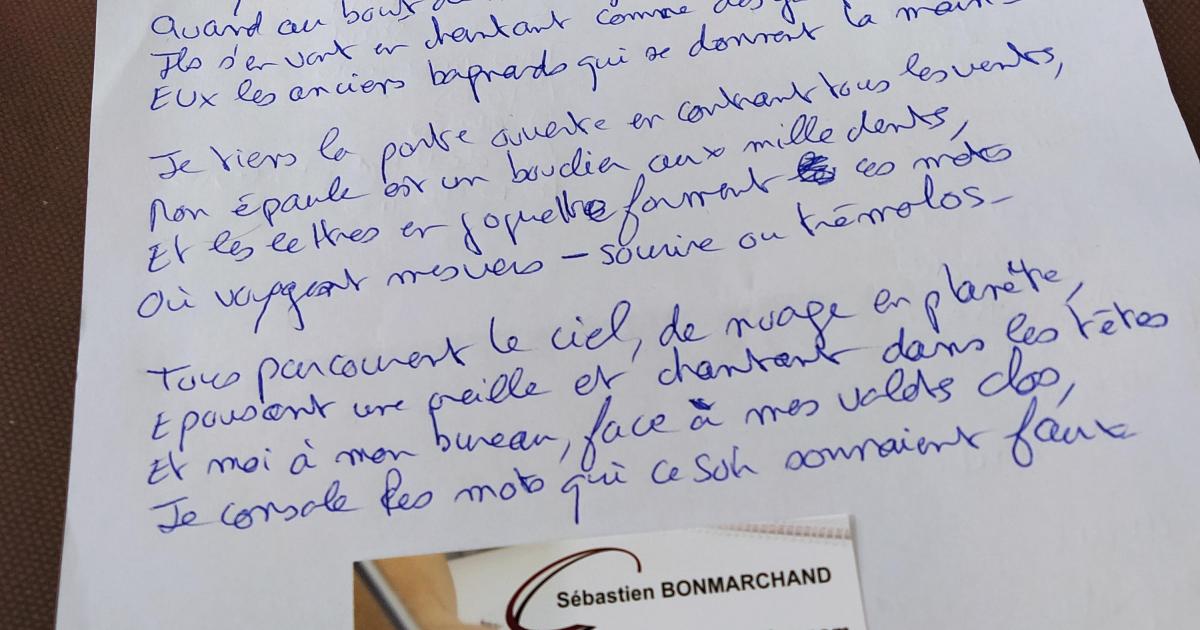 Quand au bout
Ils s'en vont en chantant comme des
EUX les anciens bagnards qui se donnent la main
Je tiens la porte ouverte en contrant tous les vents,
Mon épaule est un bouclier aux mille dents,
Et les lettres en goguette forment ces mots
Où voyagent mes vers – sourire ou trémolos –
Tous parcourent le ciel, de nuage en planète,
Epousent une oreille et chantent dans les têtes
Et moi à mon bureau, face à mes volets clos,
Je console les mots qui ce soir sonnaient faux
Sébastien BONMARCHAND